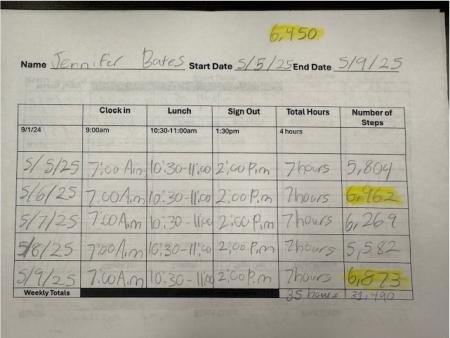 6,950
Name Jennifer Bates Start Date 5/5/25 End Date 5/9/25
Clock in Lunch Sign Out Total Hours Number of Steps
9/1/24 9:00am 10:30-11:00am 1:30pm 4 hours
5/5/25 7:00 A.m 10:30-11:00 2:00 P.m 7 hours 5,804
5/6/25 7:00 A.m 10:30-11:00 2:00 P.m 7 hours 6,962
5/7/25 7:00 A.m 10:30-11:00 2:00 P.m 7 hours 6,269
5/8/25 7:00 A.m 10:30-11:00 2:00 P.m 7 hours 5,582
5/9/25 7:00 A.m 10:30-11:00 2:00 P.m 7 hours 6,873
Weekly Totals 35 hours 31,490